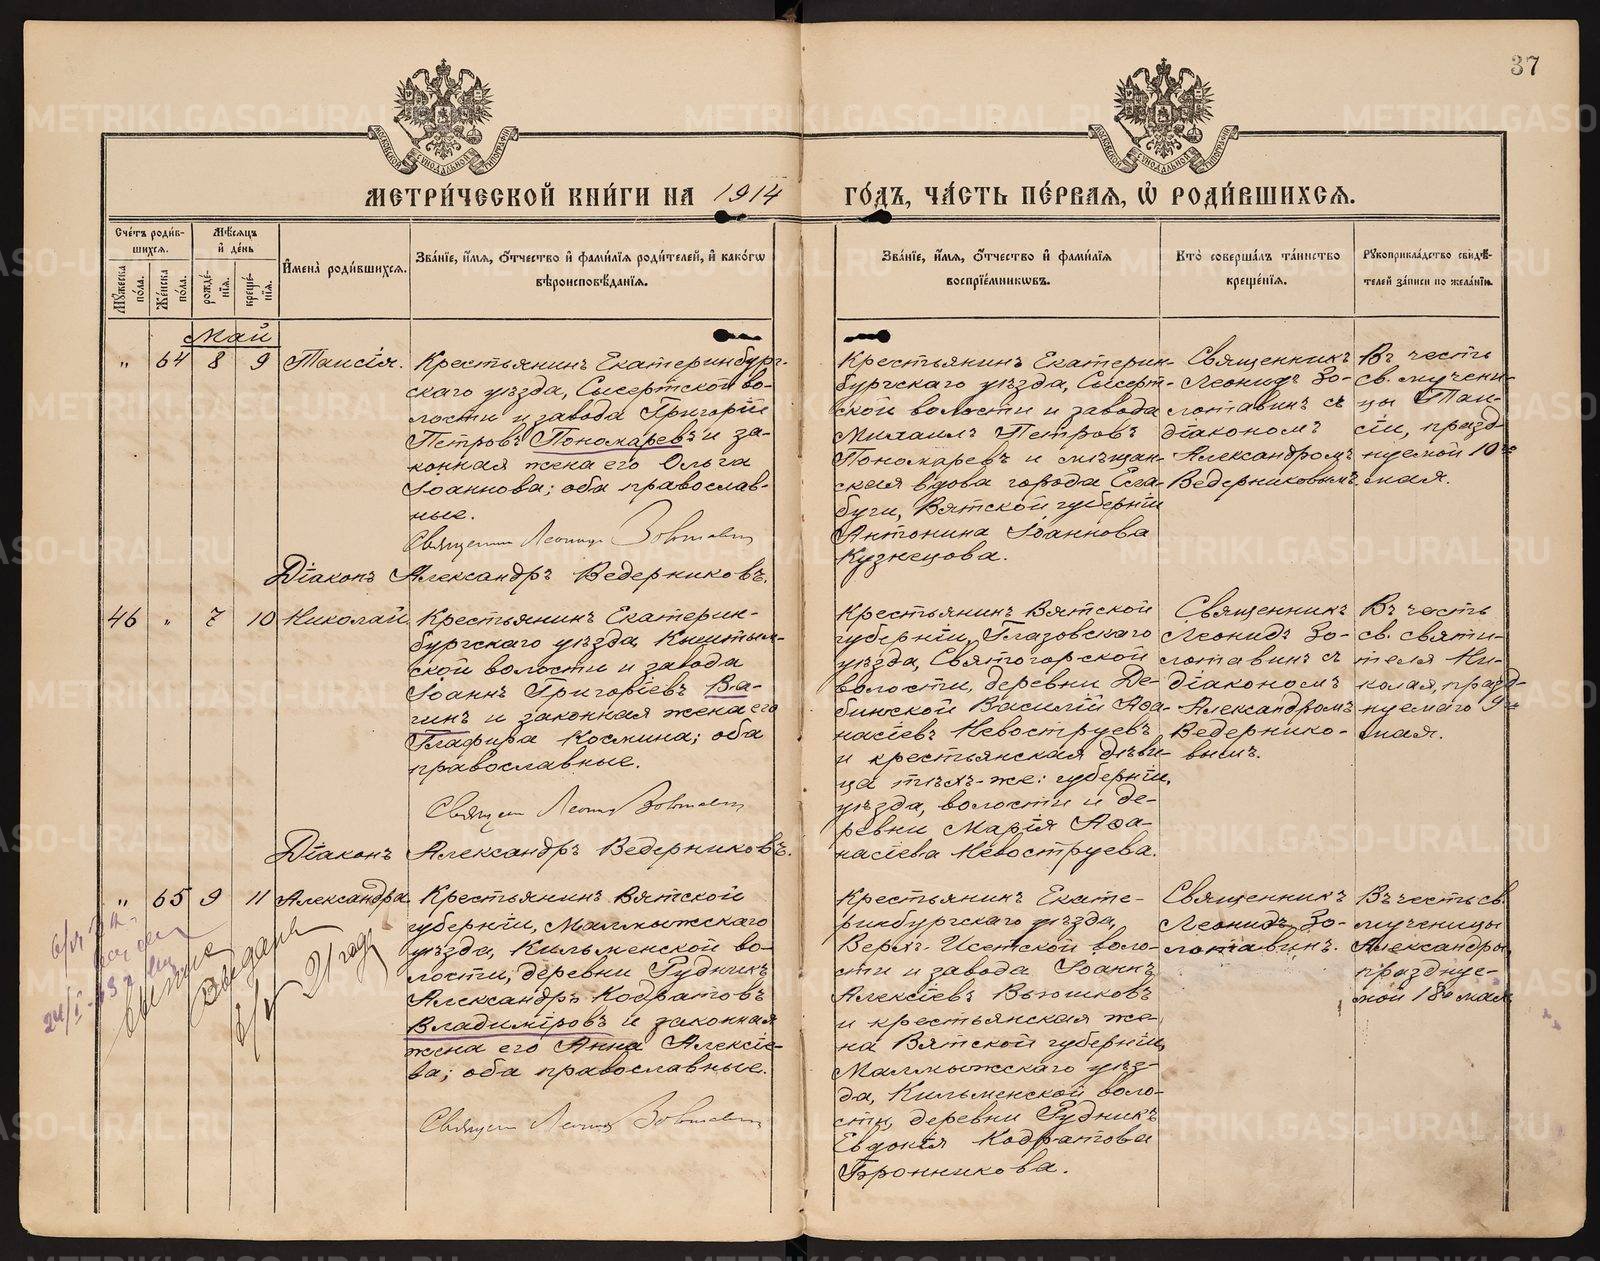 37
МЕТРИ́ЧЕСКОЙ КНИ́ГИ НА 1914 ГО́ДЪ, ЧА́СТЬ ПЕ́РВАЯ, Ѡ҆ РОДИ́ВШИХСЯ.
Сче́тъ роди́в-
шихся.
Мꙋжеска по́ла.
Же́нска по́ла.
Мѣ́сяцъ
и҆ де́нь
рожде́-
нїя.
креще́-
нїя.
И҆мена̀ роди́вшихся.
Зва́нїе, и҆́мя, ѻ҆́тчество и҆ фами́лїя роди́телей, и҆ како́гѡ
вѣроисповѣ́данїя.
Зва́нїе, и҆́мя, ѻ҆́тчество и҆ фами́лїя
воспрїе́мникѡвъ.
Кто̀ соверша́лъ та́инство
креще́нїя.
Рꙋкоприкла́дство свидѣ́-
телей за́писи по жела́нїю.
Май
" 64 8 9 Таисія.
Крестьянинъ Екатеринбург-
скаго уѣзда, Сысертской во-
лости и завода Григорій
Петровъ Пономаревъ и за-
конная жена его Ольга
Іоаннова; оба православ-
ные.
Священник Леонид Золотавин
Діаконъ Александръ Ведерниковъ.
Крестьянинъ Екатерин-
бургскаго уѣзда, Сысерт-
ской волости и завода
Михаилъ Петровъ
Пономаревъ и мѣщан-
ская вдова города Ела-
буги, Вятской губерніи
Антонина Іоаннова
Кузнецова.
Священникъ
Леонидъ Зо-
лотавинъ съ
діакономъ
Александромъ
Ведерниковымъ.
Въ честь
св. мучени-
цы Таи-
сіи, празд-
нуемой 10го
мая.
46 " 7 10 Николай
Крестьянинъ Екатерин-
бургскаго уѣзда, Кыштым-
ской волости и завода
Іоаннъ Григоріевъ Ва-
гинъ и законная жена его
Глафира Космина; оба
православные.
Священ Леонид Золотавин
Діаконъ Александръ Ведерниковъ.
Крестьянинъ Вятской
губерніи, Глазовскаго
уѣзда, Святогорской
волости, деревни Де-
бинской Василій Аѳа-
насіевъ Невоструевъ
и крестьянская дѣви-
ца тѣхъ-же: губерніи,
уѣзда, волости и де-
ревни Марія Аѳа-
насіева Невоструева.
Священникъ
Леонидъ Зо-
лотавинъ съ
діакономъ
Александромъ
Ведернико-
вымъ.
Въ честь
св. святи-
теля Ни-
колая, празд-
нуемаго 9го
мая.
" 65 9 11 Александра
Крестьянинъ Вятской
губерніи, Малмыжскаго
уѣзда, Кильмезской во-
лости, деревни Рудникъ
Александръ Кодратовъ
Владиміровъ и законная
жена его Анна Алексіе-
ва; оба православные.
Священ Леонид Золотавин
Крестьянинъ Екате-
ринбургскаго уѣзда,
Верхъ-Исетской воло-
сти и завода Іоаннъ
Алексіевъ Вьюшковъ
и крестьянская же-
на Вятской губерніи,
Малмыжскаго уѣз-
да, Кильмезской воло-
сти, деревни Рудникъ
Евдокія Кодратова
Бронникова.
Священникъ
Леонидъ Зо-
лотавинъ.
Въ честь св.
мученицы
Александры,
празднуе-
мой 18го мая
Выпись
Выдана
21 года
METRIKI.GASO-URAL.RU